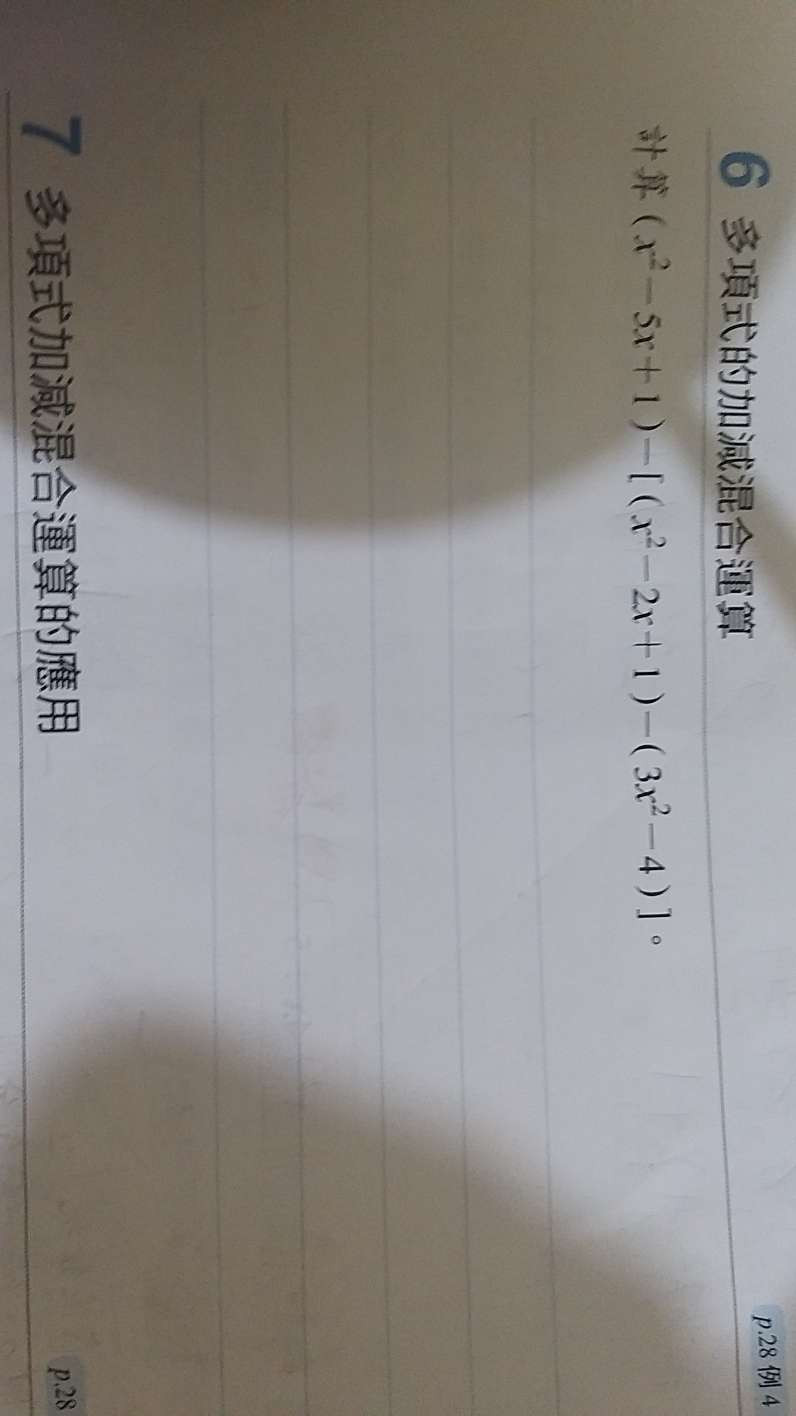 6 多項式的加減混合運算
p.28 例 4
計算 ( x² − 5x + 1 ) − [ ( x² − 2x + 1 ) − ( 3x² − 4 ) ] 。
7 多項式加減混合運算的應用
p.28